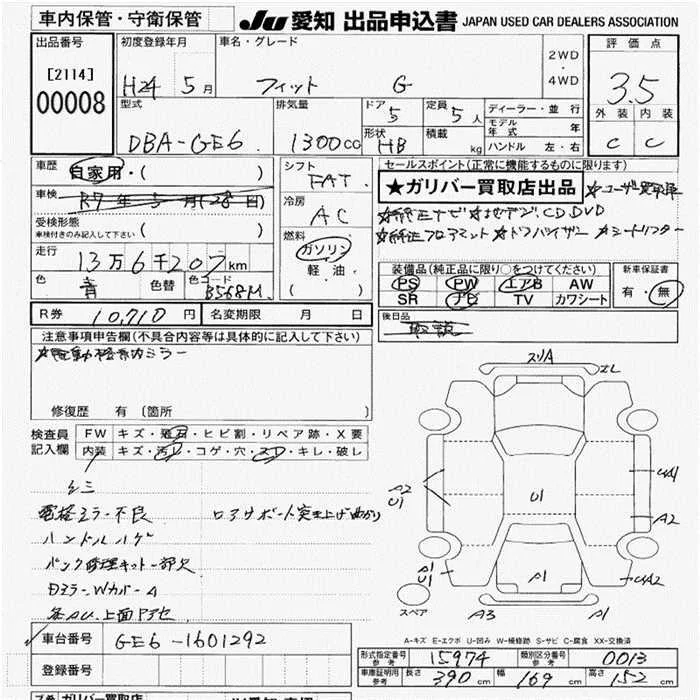 車内保管・守衛保管 JU 愛知 出品申込書 JAPAN USED CAR DEALERS ASSOCIATION
出品番号 [2114] 00008
初度登録年月 H24 5月
車名・グレード フィット G
2WD・4WD
評価点 3.5
外装 内装
C C
型式 DBA-GE6
排気量 1300cc
ドア 5
定員 5人
形状 HB
積載 kg
ディーラー・並行
モデル年式 年
ハンドル 左・右
車歴 自家用・( )
車検 R7年5月(28日)
受検形態 車検付きのみ記入して下さい ( )
走行 13万6千207km
色 青 色替 色コード B568M
シフト FAT
冷房 AC
燃料 ガソリン・軽油・( )
セールスポイント(正常に機能するものに限ります)
★ガリバー買取店出品 ★ユーザー買取車
★純正ナビ ★地デジ、CD、DVD
★純正フロアマット ★ドアバイザー ★シートリフター
装備品(純正品に限り○をつけてください)
PS PW エアB AW
SR ナビ TV カワシート
新車保証書 有・無
R券 10,710円 名変期限 月 日
後日品 取説
注意事項申告欄(不具合内容等は具体的に記入して下さい)
★電動格納ミラー
修復歴 有 〔箇所 〕
検査員記入欄
FW キズ・飛石・ヒビ割・リペア跡・X要
内装 キズ・汚レ・コゲ・穴・スレ・キレ・破レ
シミ
電格ミラー不良
ロアサポート突き上げ曲がり
ハンドルハゲ
パンク修理キット一部欠
Dミラー・Wカバー A
各AU、上面
スリA
エL
A2
U1
U1
UA1
A2
A1
U1
A1
UA2
スペア
A3
A1
A-キズ E-エクボ U-凹み W-補修跡 S-サビ C-腐食 XX-交換済
車台番号 GE6-1601292
登録番号
形式指定番号 参考 15974 類別区分番号 参考 0013
車庫証明用 参考 長さ 390cm 幅 169cm 高さ 152cm
ガリバー買取店